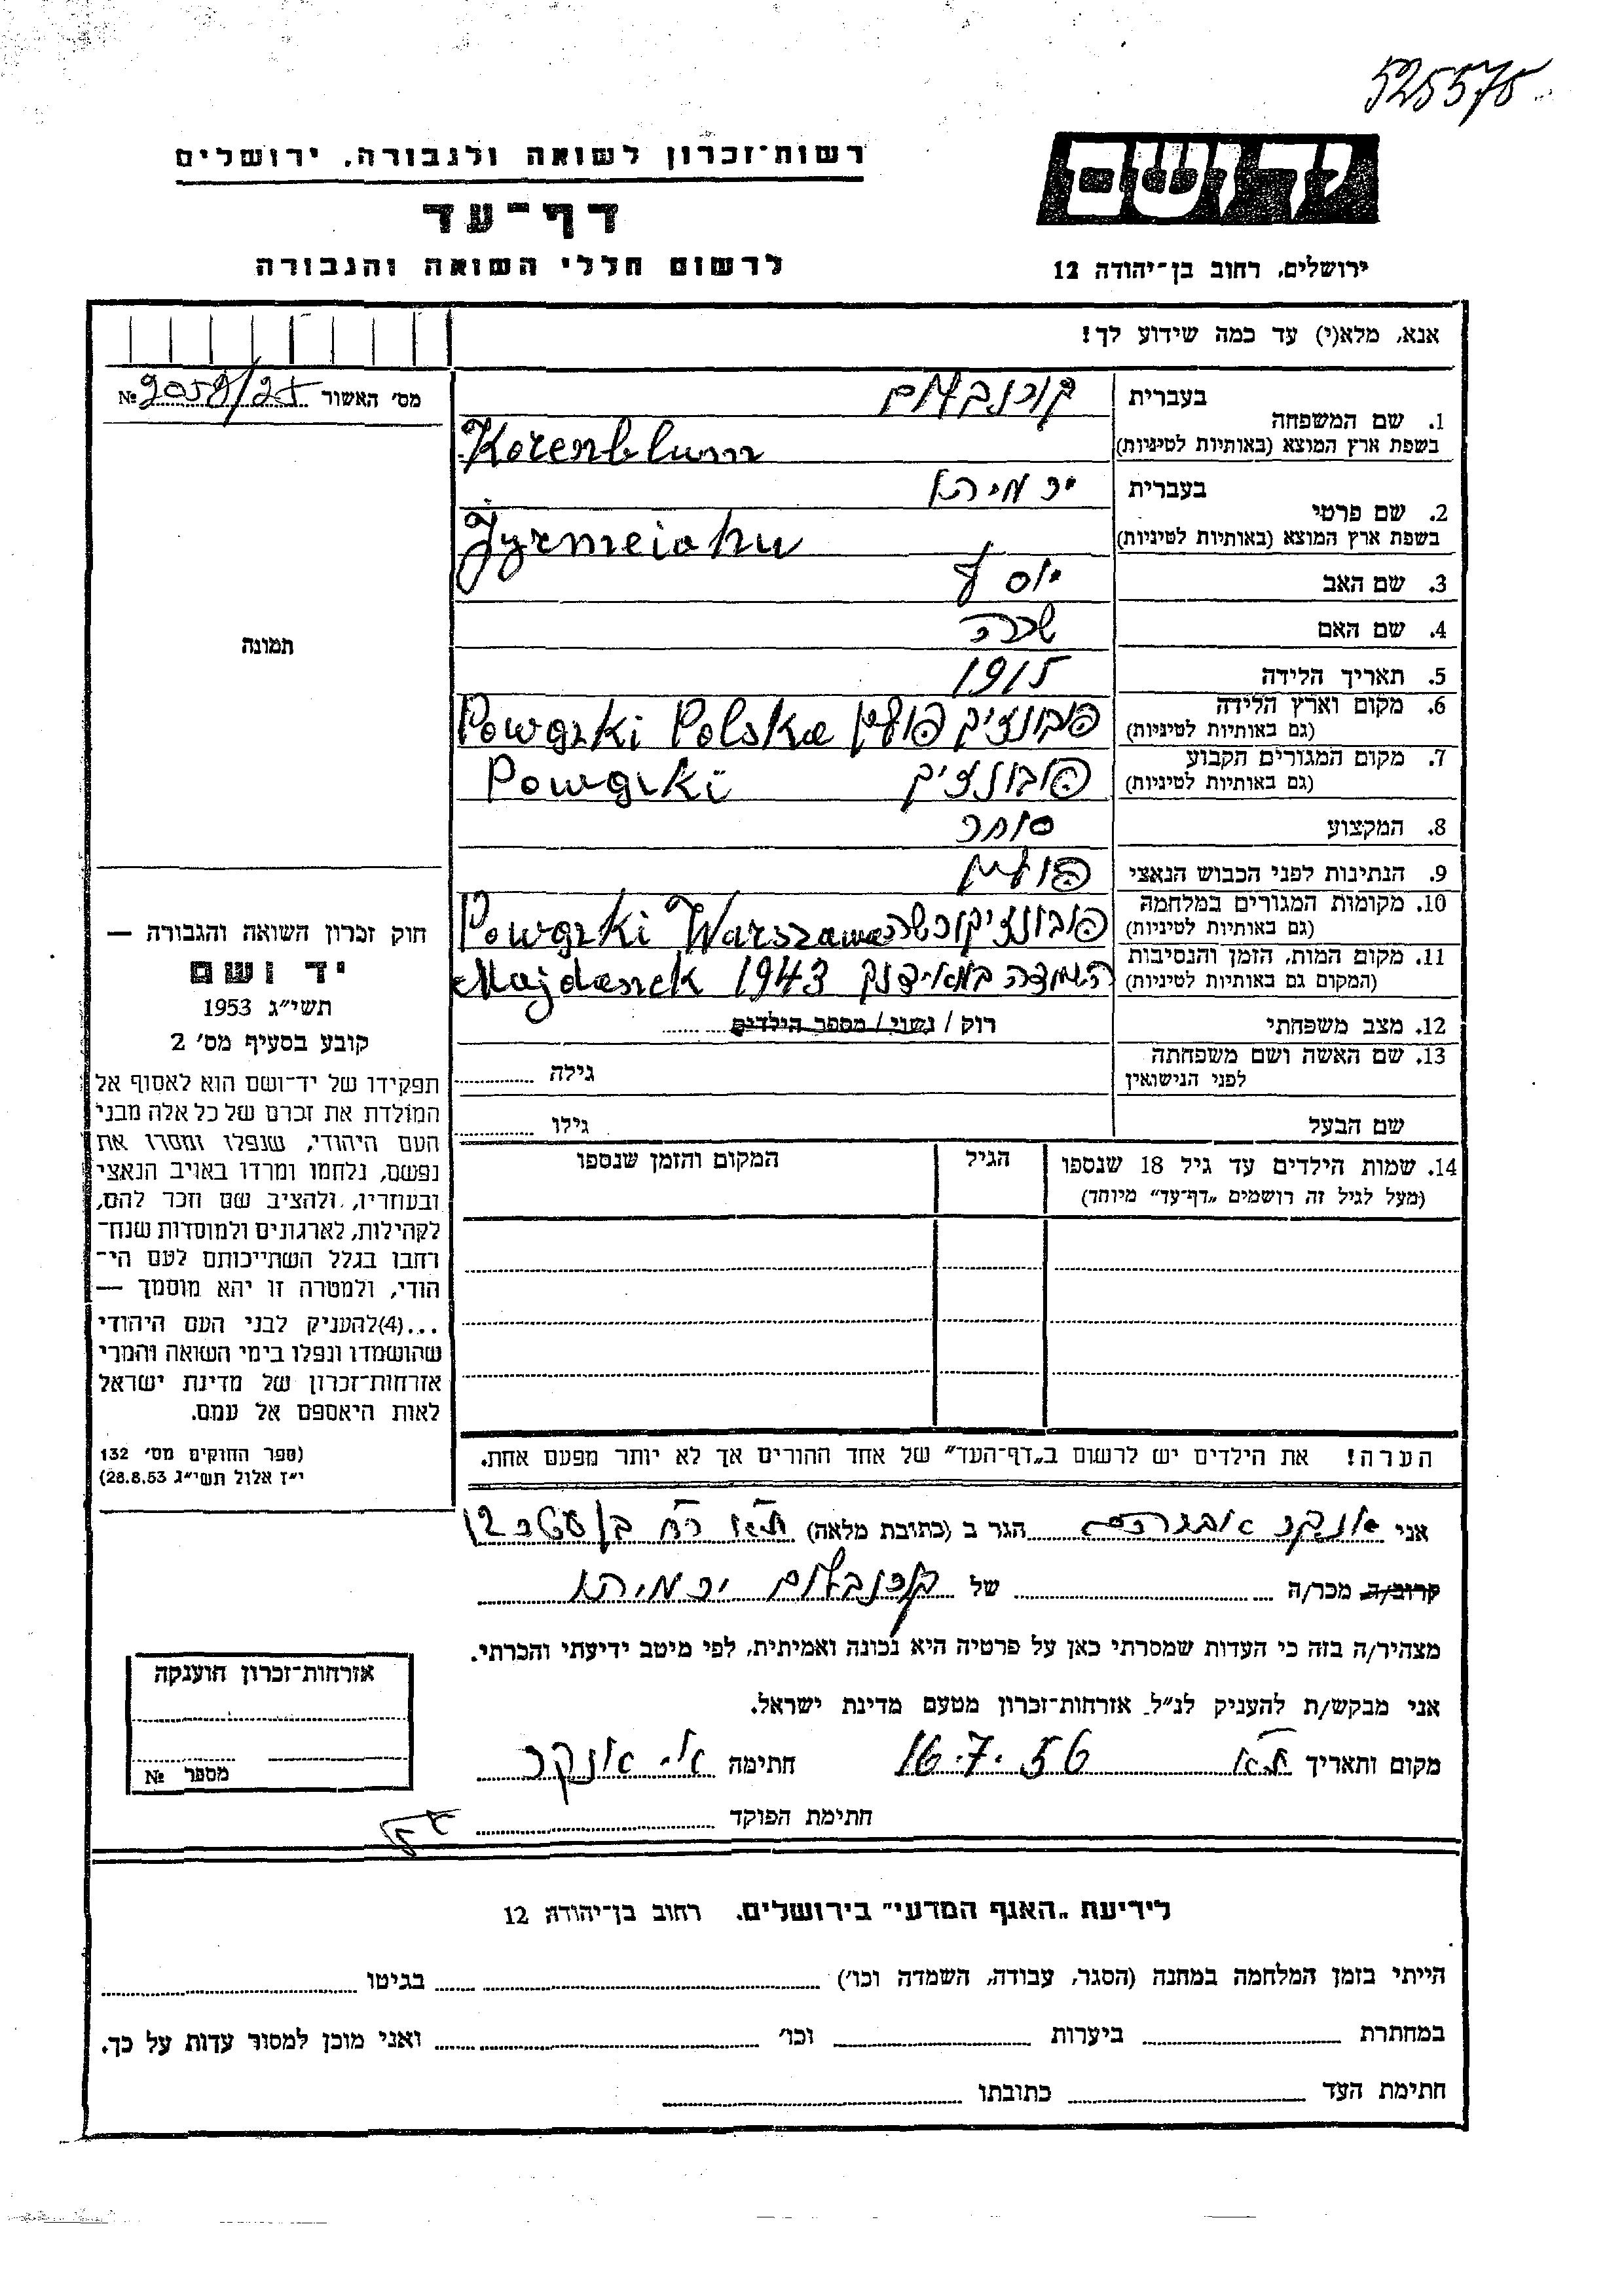 525575
רשות־זכרון לשואה ולגבורה, ירושלים
יד ושם
דף־עד
לרשום חללי השואה והגבורה
ירושלים, רחוב בן־יהודה 12
אנא, מלא(י) עד כמה שידוע לך!
מס' האשור № 2059/25
1. שם המשפחה
בעברית קורנבלום
בשפת ארץ המוצא (באותיות לטיניות) Korenblum
2. שם פרטי
בעברית ירמיהו
בשפת ארץ המוצא (באותיות לטיניות) Jyrmeiahu
3. שם האב יוסף
4. שם האם שרה
5. תאריך הלידה 1915
6. מקום וארץ הלידה
(גם באותיות לטיניות) פובונזקי פולין Powązki Polska
7. מקום המגורים הקבוע
(גם באותיות לטיניות) פובונזקי Powązki
8. המקצוע סוחר
9. הנתינות לפני הכבוש הנאצי פולין
10. מקומות המגורים במלחמה
(גם באותיות לטיניות) Powązki Warszawa
11. מקום המות, הזמן והנסיבות
(המקום גם באותיות לטיניות) במאידנק 1943 Majdanek
12. מצב משפחתי רוק / נשוי / מספר הילדים
13. שם האשה ושם משפחתה
לפני הנישואין גילה
שם הבעל גילו
14. שמות הילדים עד גיל 18 שנספו הגיל המקום והזמן שנספו
(מעל לגיל זה רושמים „דף־עד" מיוחד)
תמונה
חוק זכרון השואה והגבורה —
יד ושם
תשי"ג 1953
קובע בסעיף מס' 2
תפקידו של יד־ושם הוא לאסוף אל
המולדת את זכרם של כל אלה מבני
העם היהודי, שנפלו ומסרו את
נפשם, נלחמו ומרדו באויב הנאצי
ובעוזריו, ולהציב שם וזכר להם,
לקהילות, לארגונים ולמוסדות שנח־
רבו בגלל השתייכותם לעם הי־
הודי, ולמטרה זו יהא מוסמך —
...(4) להעניק לבני העם היהודי
שהושמדו ונפלו בימי השואה והמרי
אזרחות־זכרון של מדינת ישראל
לאות היאספם אל עמם.
(ספר החוקים מס' 132
י"ז אלול תשי"ג 28.8.53)
הערה! את הילדים יש לרשום ב„דף־העד" של אחד ההורים אך לא יותר מפעם אחת.
אני אונקר אברהם הגר ב (כתובת מלאה) ת"א רח' 12
קרוב/ה מכר/ה של קורנבלום ירמיהו
מצהיר/ה בזה כי העדות שמסרתי כאן על פרטיה היא נכונה ואמיתית, לפי מיטב ידיעתי והכרתי.
אני מבקש/ת להעניק לנ"ל אזרחות־זכרון מטעם מדינת ישראל.
מקום ותאריך ת"א 16.7.56 חתימה א. אונקר
חתימת הפוקד
אזרחות־זכרון הוענקה
מספר №
לידיעת „האגף המדעי" בירושלים, רחוב בן־יהודה 12
הייתי בזמן המלחמה במחנה (הסגר, עבודה, השמדה וכו') בגיטו
במחתרת ביערות וכו' ואני מוכן למסור עדות על כך.
חתימת העד כתובתו